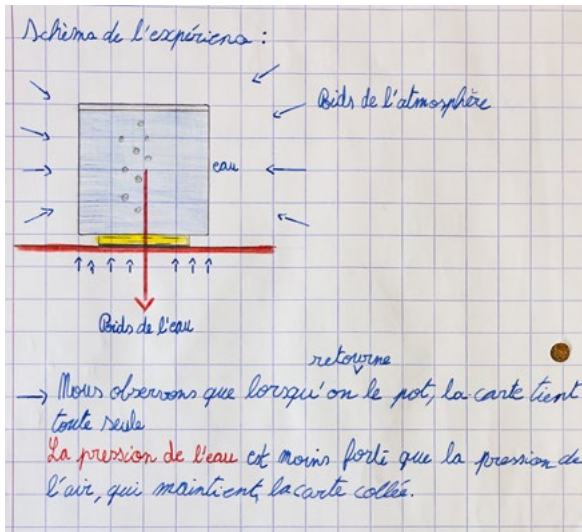 Schèma de l'expérience :
Poids de l'atmosphère
eau
Poids de l'eau
retourne
→ Nous observons que lorsqu'on le pot, la carte tient
toute seule
La pression de l'eau est moins forte que la pression de
l'air, qui maintient la carte collée.